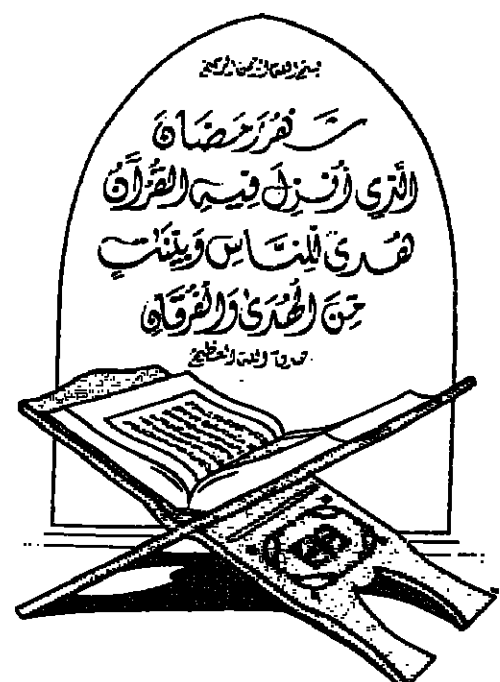 بسم الله الرحمن الرحيم
شَهْرُ رَمَضَانَ
الَّذِي أُنْزِلَ فِيهِ الْقُرْآنُ
هُدًى لِلنَّاسِ وَبَيِّنَاتٍ
مِنَ الْهُدَىٰ وَالْفُرْقَانِ
صدق الله العظيم